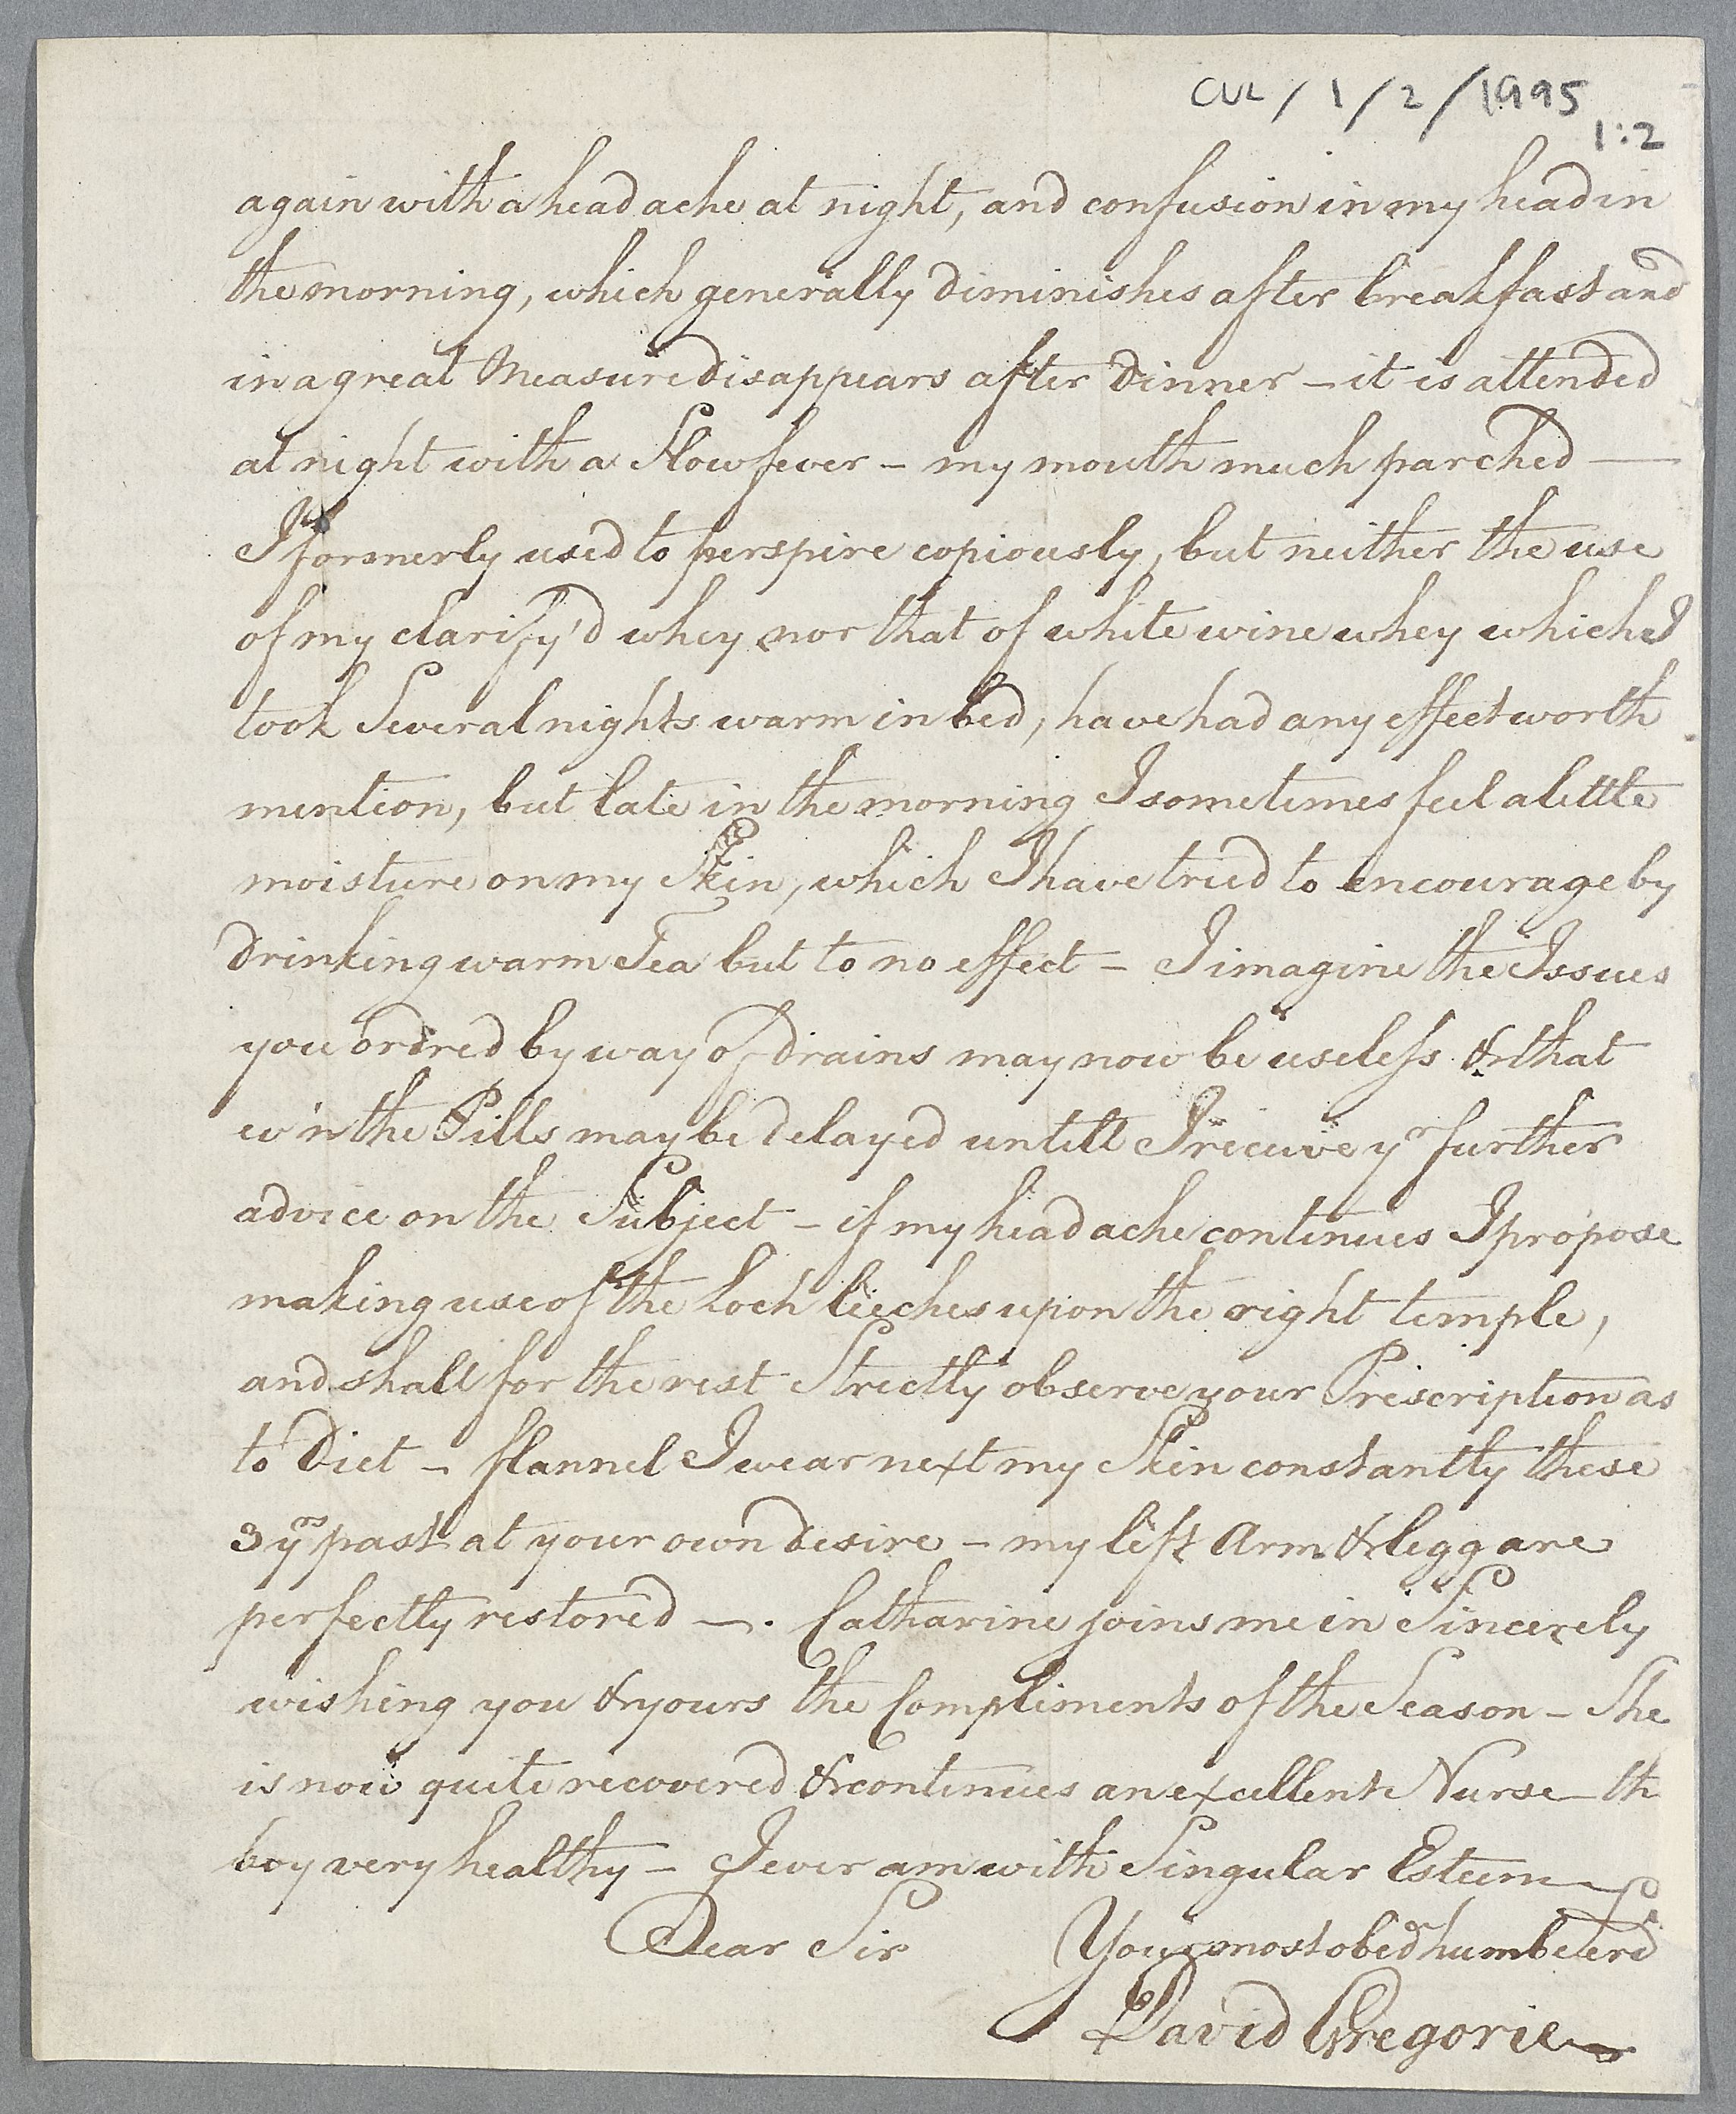 CUL / 1 / 2 / 1995
1:2
again with a head ache at night, and confusion in my head in
the morning, which generally diminishes after breakfast and
in a great Measure disappears after Dinner – it is attended
at night with a Slow fever – my mouth much parched —
I formerly used to perspire copiously, but neither the use
of my clarify'd whey nor that of white wine whey which I
took Several nights warm in bed, have had any effect worth
mention, but late in the morning I sometimes feel a little
moisture on my Skin, which I have tried to encourage by
drinking warm Tea but to no effect – I imagine the Issues
you ordred by way of drains may now be useless & that
the Pills may be delayed untill I receive yr further
advice on the Subject – if my head ache continues I propose
making use of the Loch leeches upon the right temple,
and shall for the rest Strictly observe your Prescription as
to Diet – flannel I wear next my Skin constantly these
3 yrs past at your own desire – my left Arm & legg are
perfectly restored —. Catharine joins me in Sincerely
wishing you & yours the Compliments of the Season – She
is now quite recovered & continues an excellent Nurse – th
boy very healthy – I ever am with Singular Esteem
Dear Sir Your most obedt humble Serv
David Gregorie